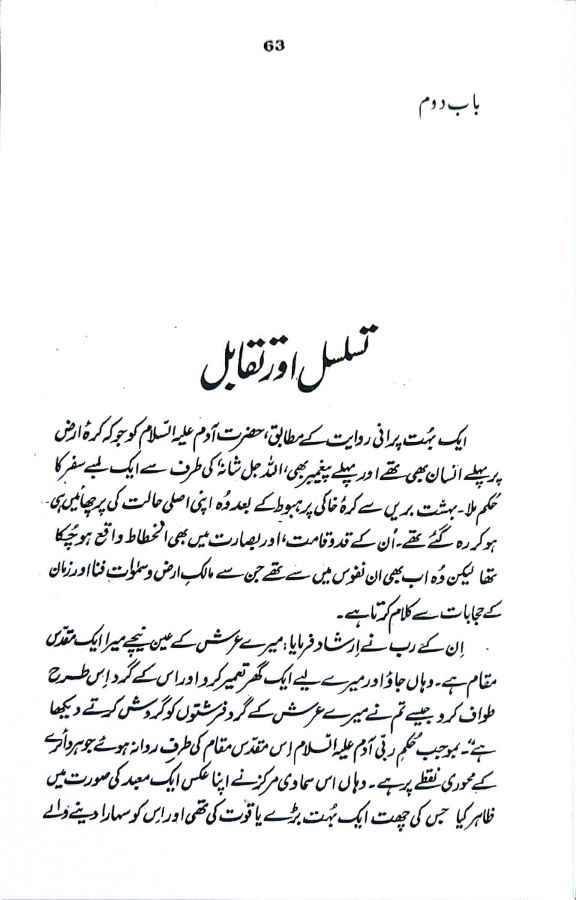 63
باب دوم
تسلسل اور تقابل
ایک بہت پرانی روایت کے مطابق، حضرت آدم علیہ السلام کو جو کہ کرۂ ارض
پر پہلے انسان بھی تھے اور پہلے پیغمبر بھی، اللہ جل شانہٗ کی طرف سے ایک لمبے سفر کا
حُکم ملا۔ بہشت بریں سے کرۂ خاکی پر ہبوط کے بعد وُہ اپنی اصلی حالت کی پرچھائیں ہی
ہو کر رہ گئے تھے۔ اُن کے قد و قامت، اور بصارت میں بھی انحطاط واقع ہو چُکا
تھا لیکن وُہ اب بھی ان نفوس میں سے تھے جن سے مالکِ ارض و سمٰوات فنا اور زمان
کے حجابات سے کلام کرتا ہے۔
اِن کے رب نے اِرشاد فرمایا: میرے عرش کے عین نیچے میرا ایک مقدّس
مقام ہے۔ وہاں جاؤ اور میرے لیے ایک گھر تعمیر کرو اور اس کے گرد اِس طرح
طواف کرو جیسے تم نے میرے عرش کے گرد فرشتوں کو گردش کرتے دیکھا
ہے"۔ بموجب حُکمِ ربّی آدم علیہ السلام اِس مقدّس مقام کی طرف روانہ ہوئے جو ہر دائرے
کے محوری نقطے پر ہے۔ وہاں اس سماوی مرکز نے اپنا عکس ایک معبد کی صورت میں
ظاہر کیا جس کی چھت ایک بہت بڑے یاقوت کی تھی اور اِس کو سہارا دینے والے